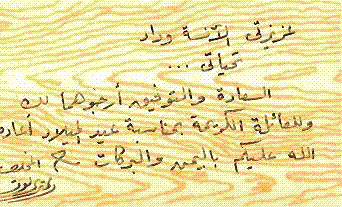 عزيزتى الآنسة وداد
تحياتى ...
السعادة والتوفيق أرجوهما لك
وللعائلة الكريمة بمناسبة عيد الميلاد أعاده
الله عليكم باليمن والبركات